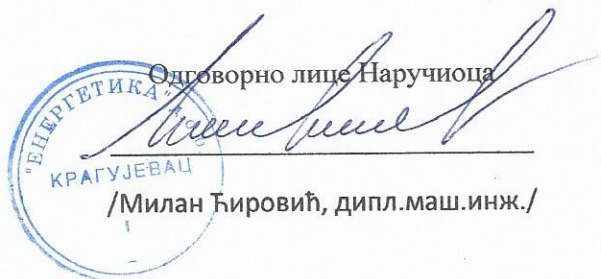 Одговорно лице Наручиоца
"ЕНЕРГЕТИКА" д.о.о.
КРАГУЈЕВАЦ
I
/Милан Ћировић, дипл.маш.инж./